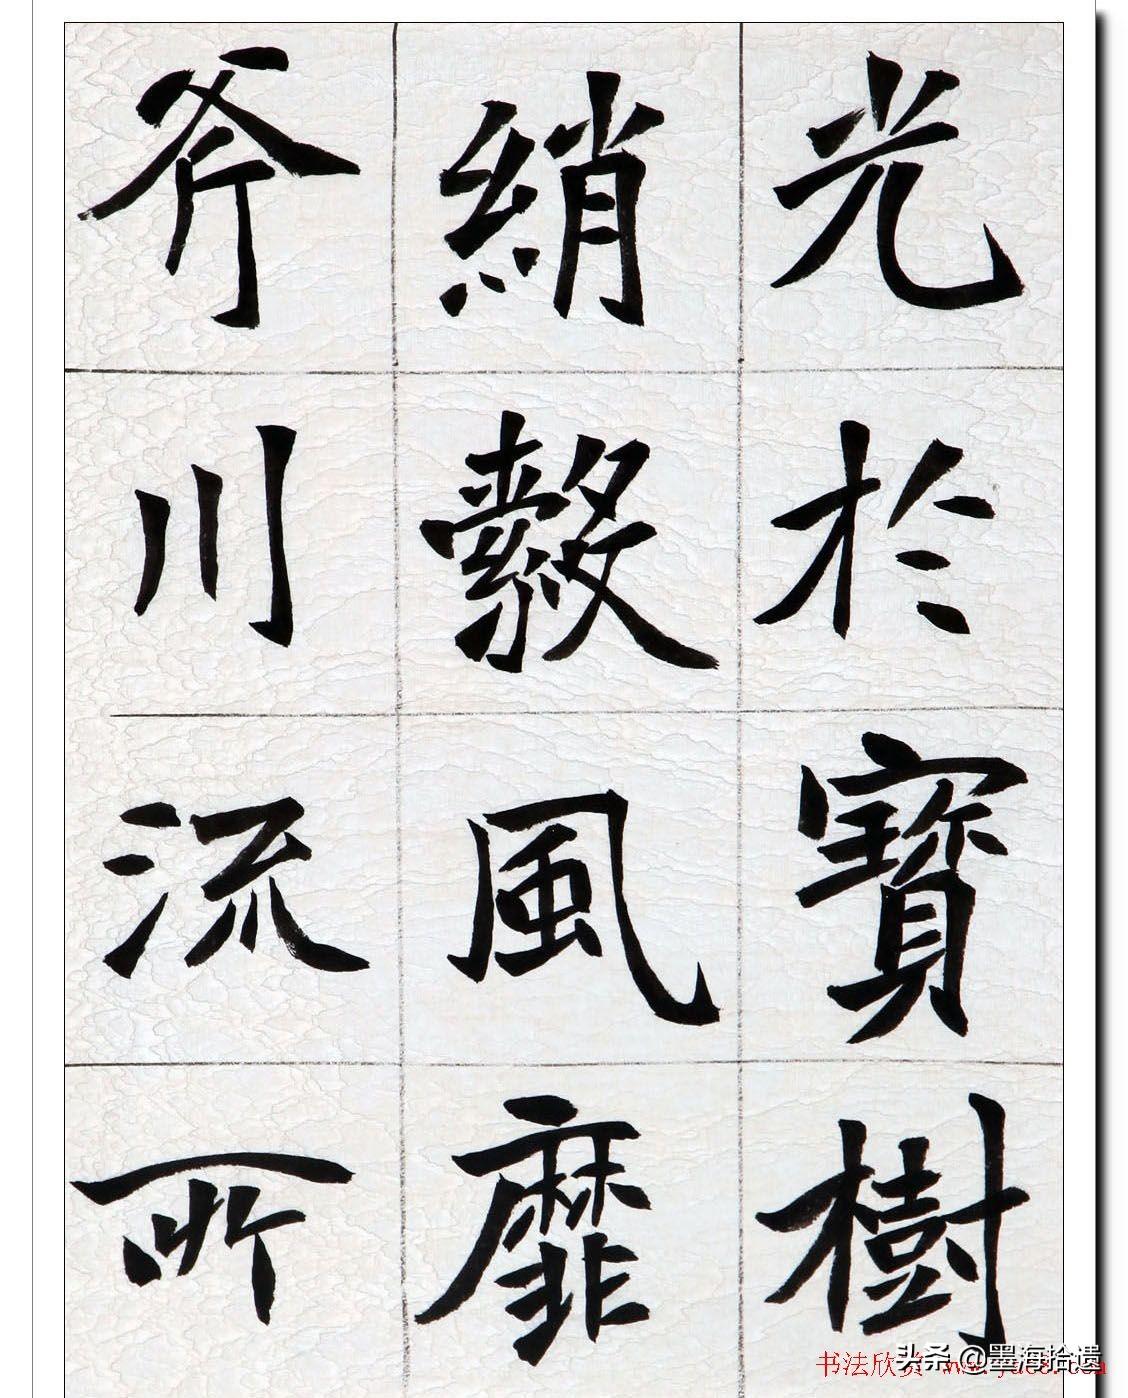 光於寶樹
綃縠風靡
斧川流所
书法欣赏
头条 @墨海拾遗